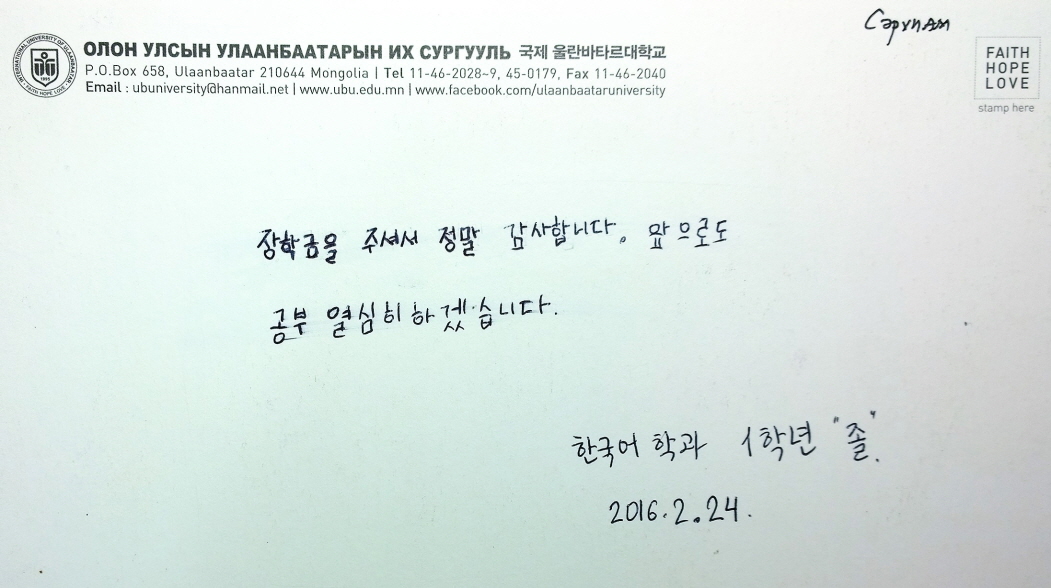 ОЛОН УЛСЫН УЛААНБААТАРЫН ИХ СУРГУУЛЬ 국제 울란바타르대학교
P.O.Box 658, Ulaanbaatar 210644 Mongolia | Tel 11-46-2028~9, 45-0179, Fax 11-46-2040
Email : ubuniversity@hanmail.net | www.ubu.edu.mn | www.facebook.com/ulaanbaataruniversity
FAITH
HOPE
LOVE
stamp here
장학금을 주셔서 정말 감사합니다. 앞으로도
공부 열심히 하겠습니다.
한국어 학과 1학년 "졸".
2016.2.24.